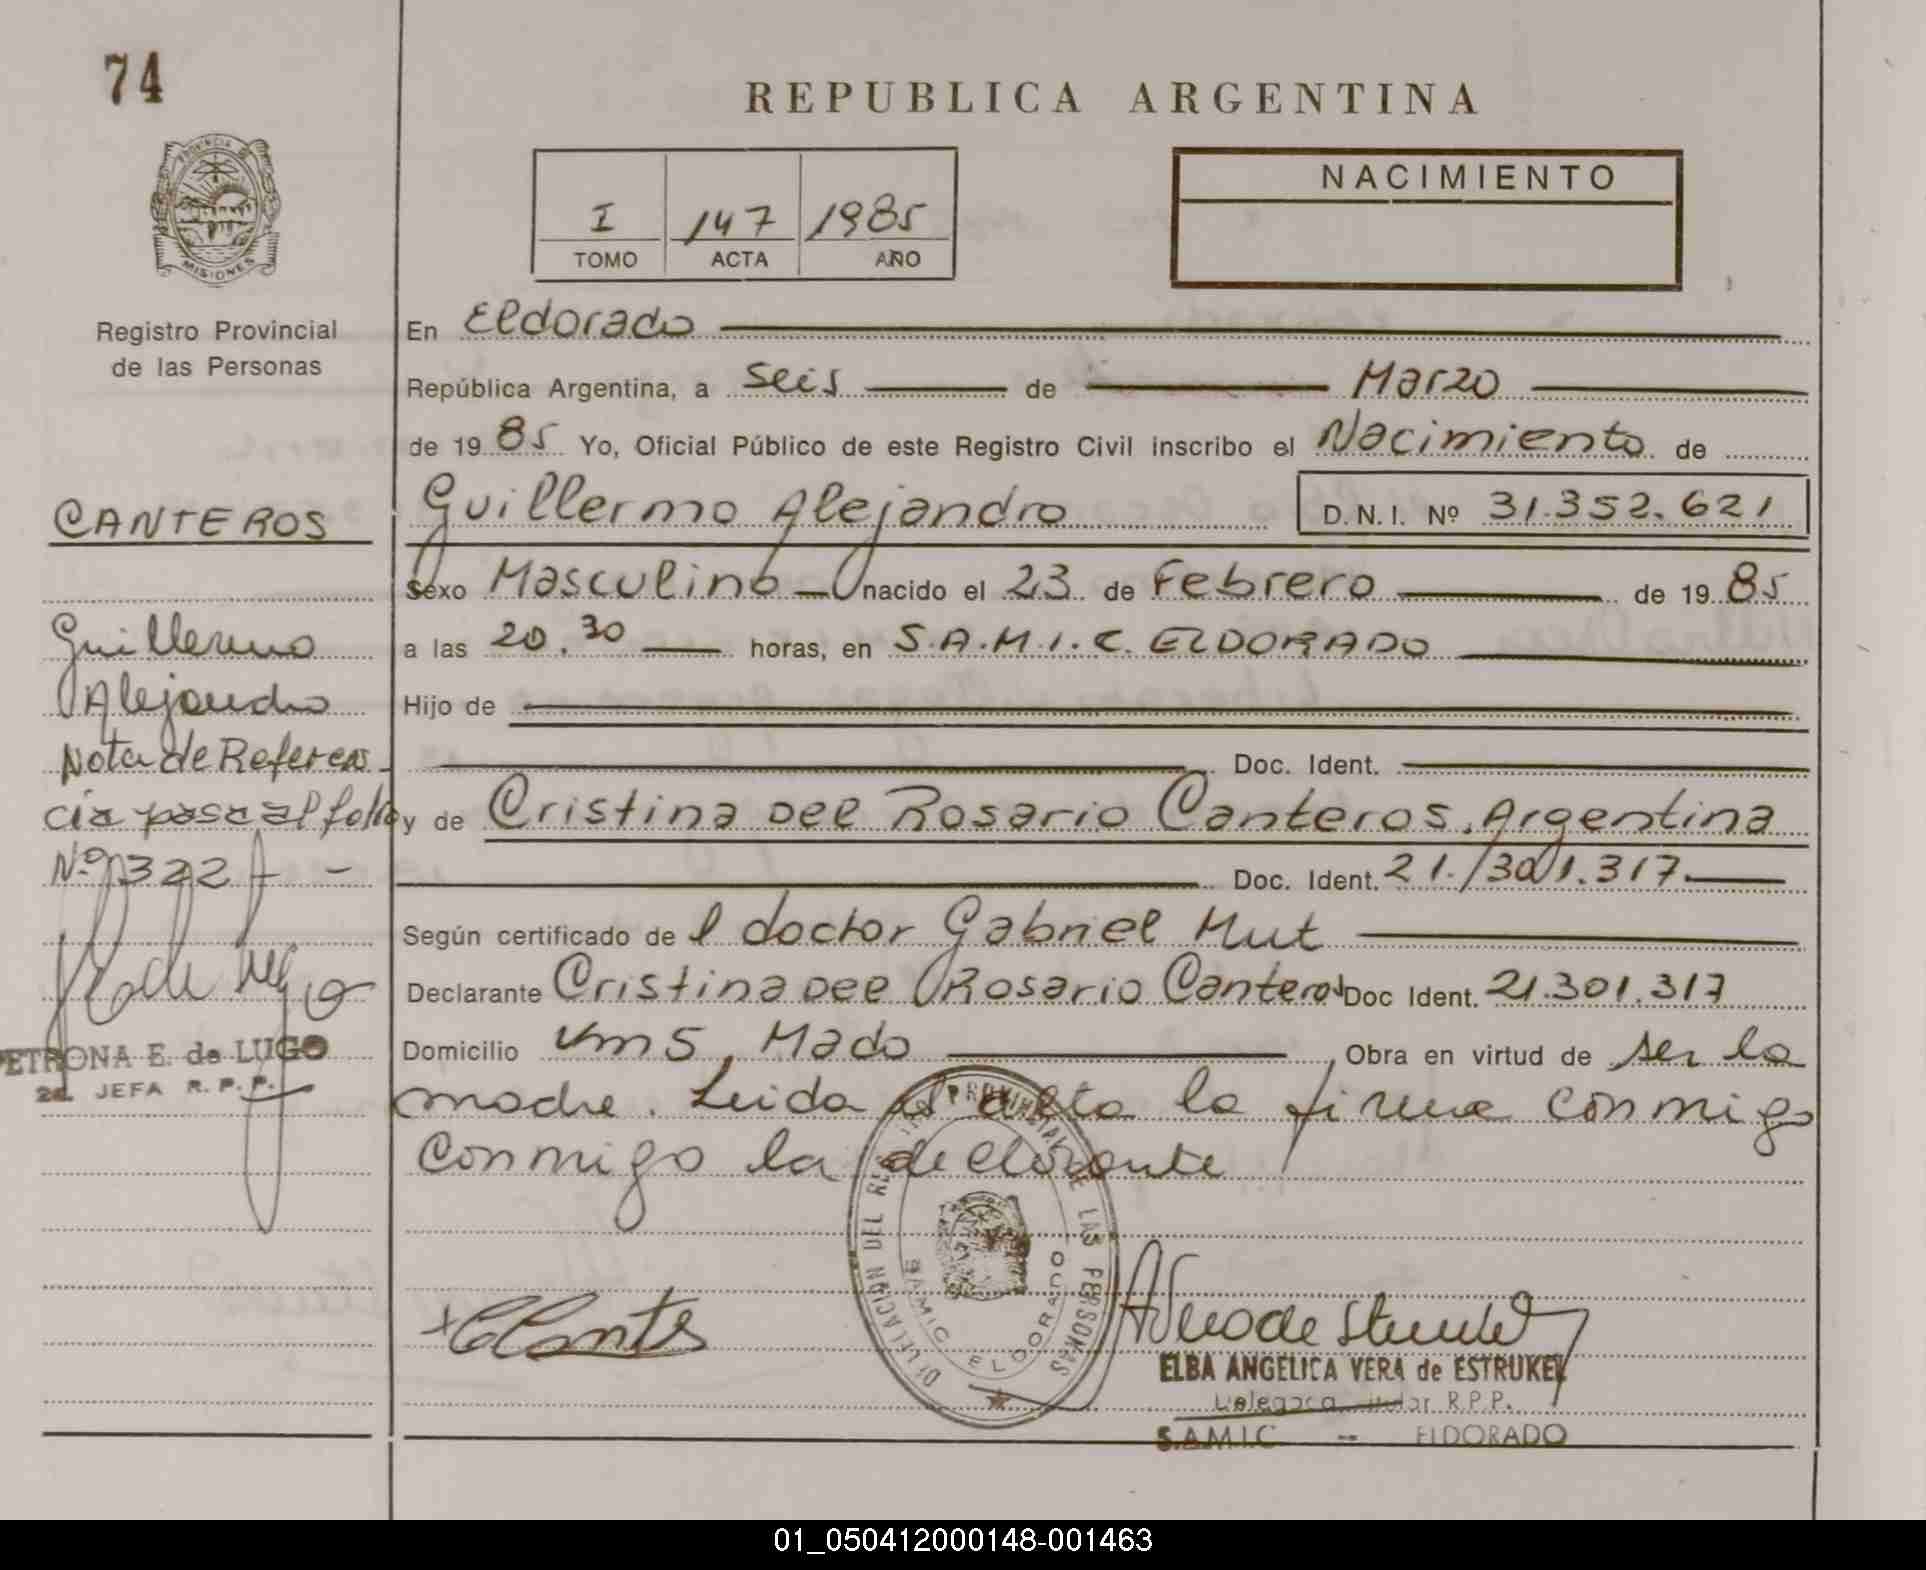 74
REPUBLICA ARGENTINA
PROVINCIA DE
MISIONES
Registro Provincial
de las Personas
I 147 1985
TOMO ACTA AÑO
NACIMIENTO
En Eldorado
República Argentina, a seis de Marzo
de 1985 Yo, Oficial Público de este Registro Civil inscribo el Nacimiento de
CANTEROS
Guillermo Alejandro D.N.I. Nº 31.352.621
Sexo Masculino nacido el 23 de Febrero de 1985
Guillermo
a las 20.30 horas, en S.A.M.I.C. ELDORADO
Alejandro
Hijo de
Nota de Referen
Doc. Ident.
cia pasa al folio
y de Cristina Del Rosario Canteros, Argentina
Nº 322
Doc. Ident. 21./301.317.
Según certificado de l doctor Gabriel Mut
Declarante Cristina Del Rosario Canteros Doc Ident. 21.301.317
Domicilio Km 5, Mado Obra en virtud de ser la
PETRONA E. de LUGO
2a. JEFA R.P.P.
madre. Leida el acta la firma conmigo
conmigo la declarante
DELEGACION DEL REGISTRO PROVINCIAL DE LAS PERSONAS
SAMIC ELDORADO
ELBA ANGELICA VERA de ESTRUKEL
Delegada Titular R.P.P.
S.A.M.I.C -- ELDORADO
01_050412000148-001463